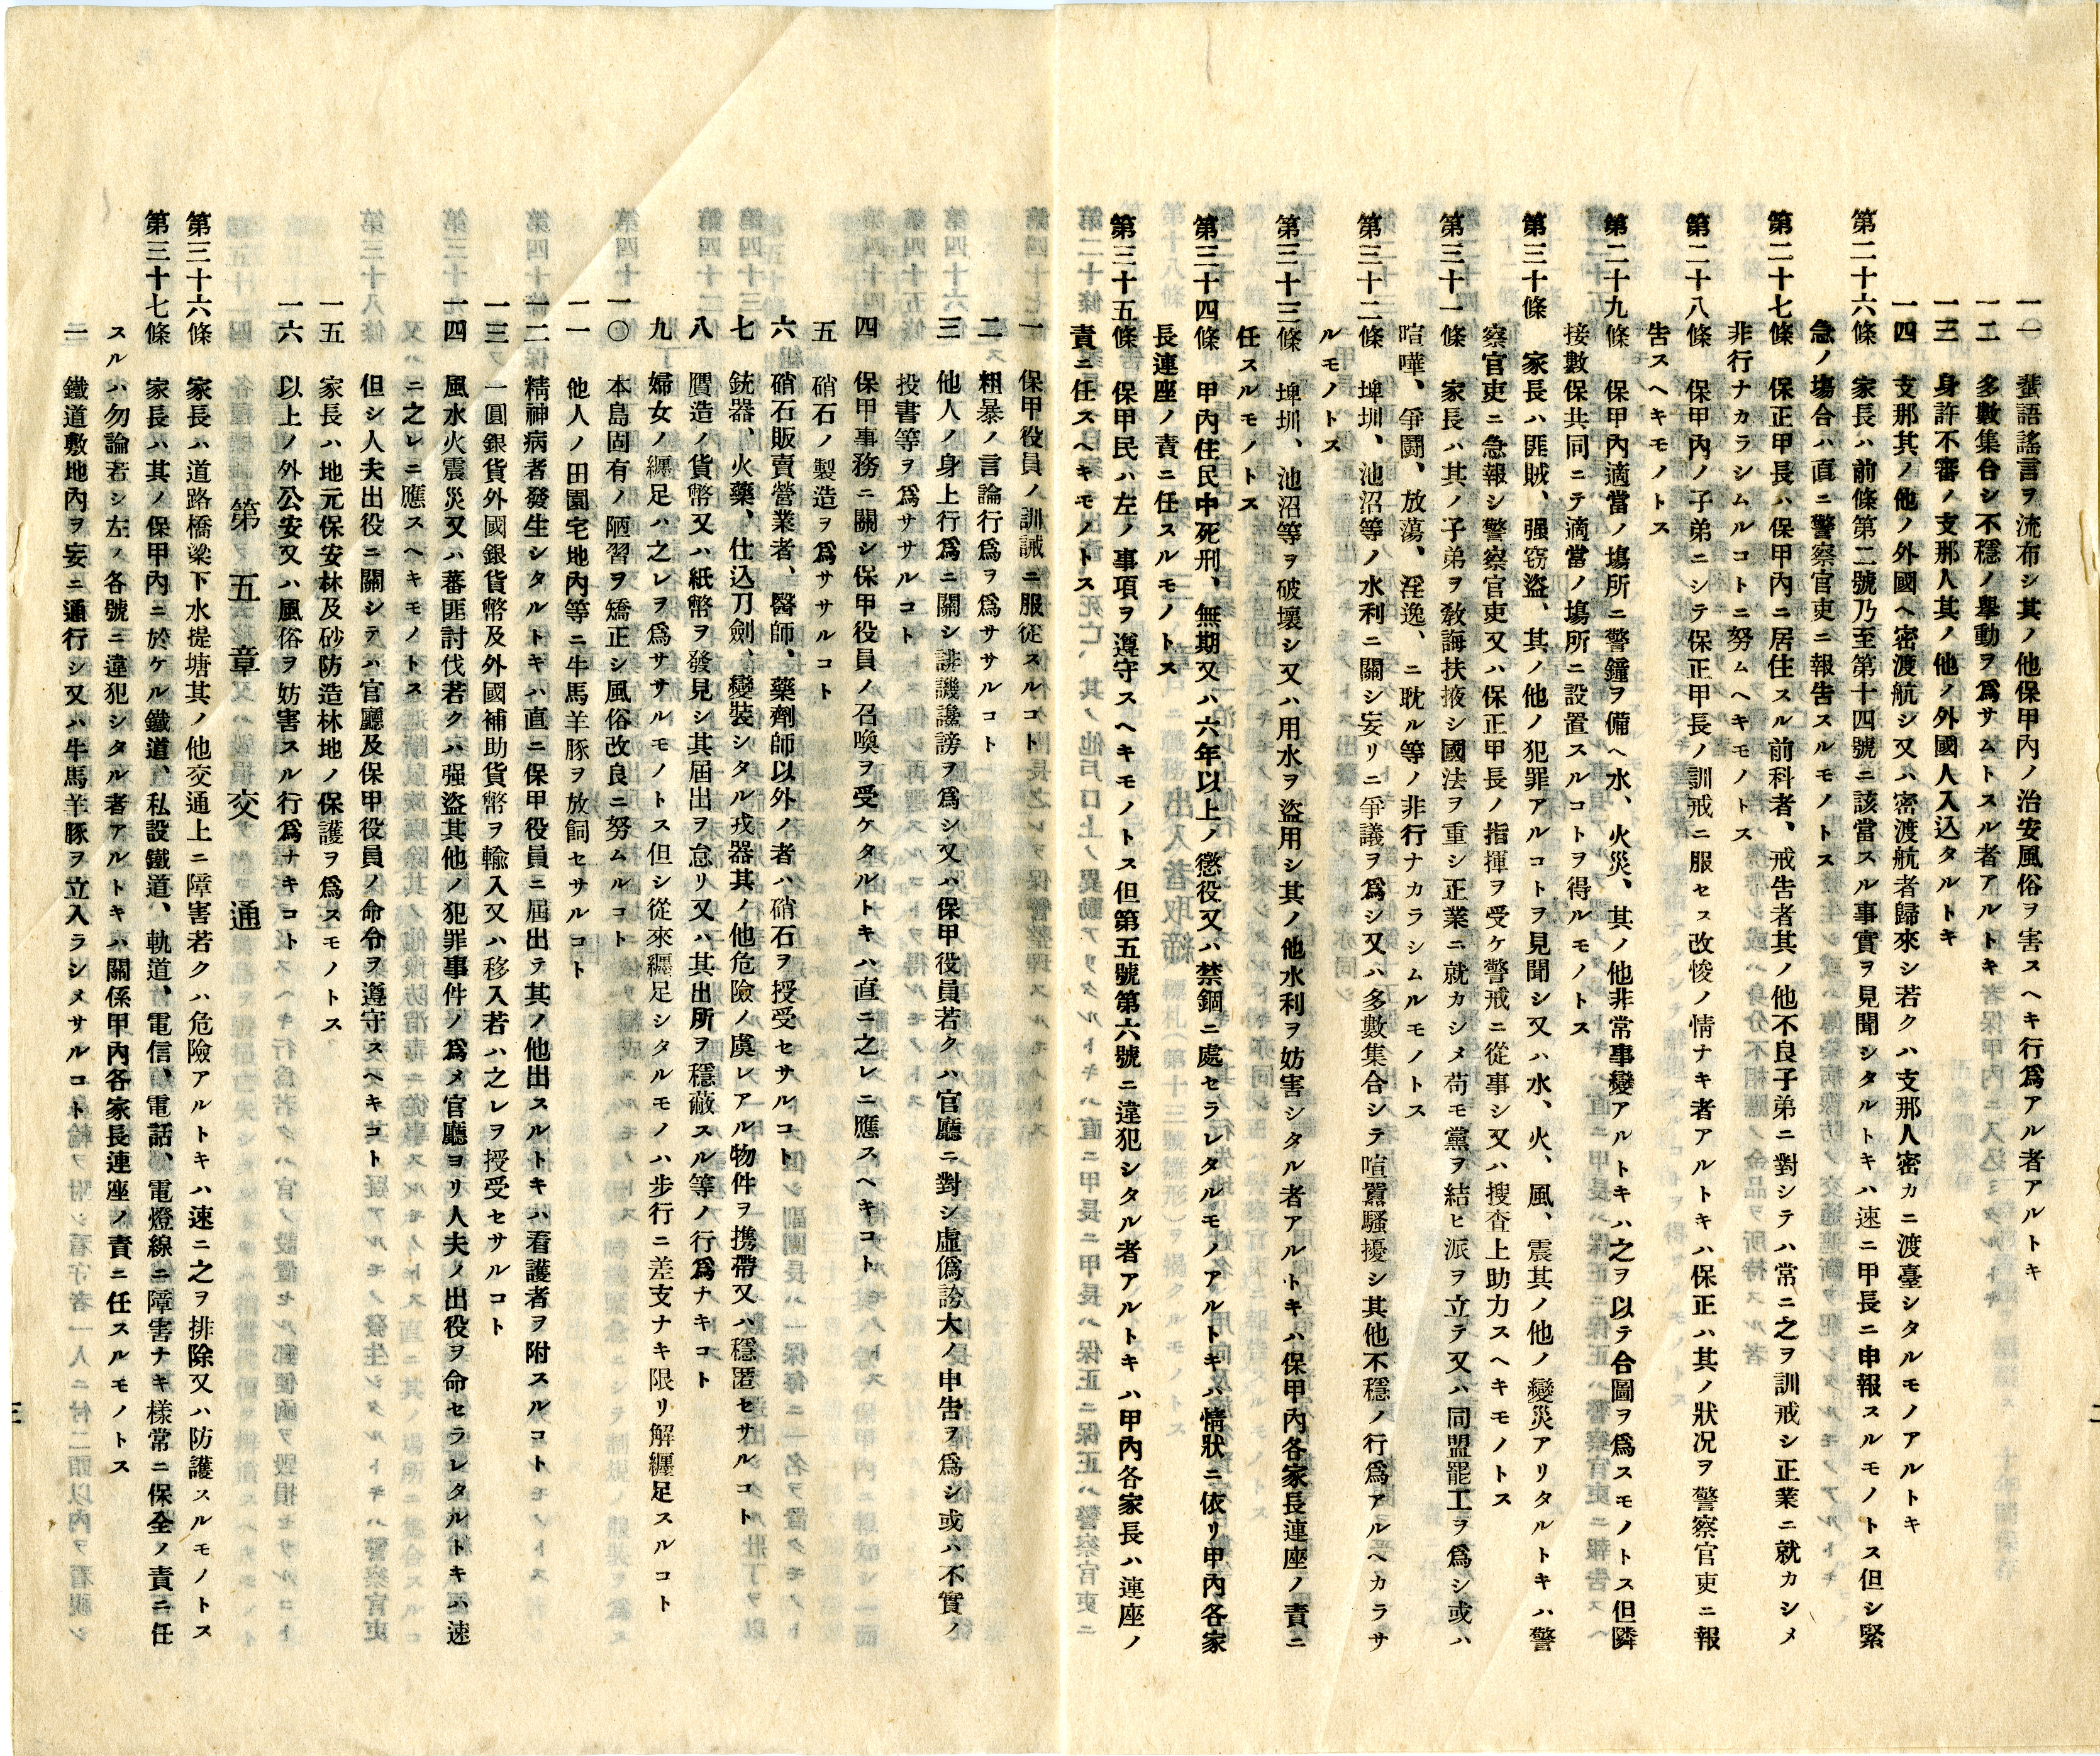 一一 蜚語謠言ヲ流布シ其ノ他保甲內ノ治安風俗ヲ害スヘキ行爲アル者アルトキ
一二 多數集合シ不穩ノ擧動ヲ爲サムトスル者アルトキ
一三 身許不審ノ支那人其ノ他ノ外國人入込タルトキ
一四 支那其ノ他ノ外國ヘ密渡航シ又ハ密渡航者歸來シ若クハ支那人密カニ渡臺シタルモノアルトキ
第二十六條 家長ハ前條第二號乃至第十四號ニ該當スル事實ヲ見聞シタルトキハ速ニ甲長ニ申報スルモノトス但シ緊
急ノ場合ハ直ニ警察官吏ニ報告スルモノトス
第二十七條 保正甲長ハ保甲內ニ居住スル前科者、戒告者其ノ他不良子弟ニ對シテハ常ニ之ヲ訓戒シ正業ニ就カシメ
非行ナカラシムルコトニ努ムヘキモノトス
第二十八條 保甲內ノ子弟ニシテ保正甲長ノ訓戒ニ服セス改悛ノ情ナキ者アルトキハ保正ハ其ノ狀況ヲ警察官吏ニ報
告スヘキモノトス
第二十九條 保甲內適當ノ場所ニ警鐘ヲ備ヘ水、火災、其ノ他非常事變アルトキハ之ヲ以テ合圖ヲ爲スモノトス但隣
接數保共同ニテ適當ノ場所ニ設置スルコトヲ得ルモノトス
第三十條 家長ハ匪賊、强窃盜、其ノ他ノ犯罪アルコトヲ見聞シ又ハ水、火、風、震其ノ他ノ變災アリタルトキハ警
察官吏ニ急報シ警察官吏又ハ保正甲長ノ指揮ヲ受ケ警戒ニ從事シ又ハ搜査上助力スヘキモノトス
第三十一條 家長ハ其ノ子弟ヲ敎誨扶掖シ國法ヲ重シ正業ニ就カシメ苟モ黨ヲ結ヒ派ヲ立テ又ハ同盟罷工ヲ爲シ或ハ
喧嘩、爭鬪、放蕩、淫逸、ニ耽ル等ノ非行ナカラシムルモノトス
第三十二條 埤圳、池沼等ノ水利ニ關シ妄リニ爭議ヲ爲シ又ハ多數集合シテ喧囂騷擾シ其他不穩ノ行爲アルヘカラサ
ルモノトス
第三十三條 埤圳、池沼等ヲ破壞シ又ハ用水ヲ盜用シ其ノ他水利ヲ妨害シタル者アルトキハ保甲內各家長連座ノ責ニ
任スルモノトス
第三十四條 甲內住民中死刑、無期又ハ六年以上ノ懲役又ハ禁錮ニ處セラレタルモノアルトキハ情狀ニ依リ甲內各家
長連座ノ責ニ任スルモノトス
第三十五條 保甲民ハ左ノ事項ヲ遵守スヘキモノトス但第五號第六號ニ違犯シタル者アルトキハ甲內各家長ハ連座ノ
責ニ任スヘキモノトス
二
一 保甲役員ノ訓誡ニ服從スルコト
二 粗暴ノ言論行爲ヲ爲ササルコト
三 他人ノ身上行爲ニ關シ誹譏讒謗ヲ爲シ又ハ保甲役員若クハ官廳ニ對シ虛僞誇大ノ申告ヲ爲シ或ハ不實ノ
投書等ヲ爲ササルコト
四 保甲事務ニ關シ保甲役員ノ召喚ヲ受ケタルトキハ直ニ之レニ應スヘキコト
五 硝石ノ製造ヲ爲ササルコト
六 硝石販賣營業者、醫師、藥劑師以外ノ者ハ硝石ヲ授受セサルコト
七 銃器、火藥、仕込刀劍、變裝シタル戎器其ノ他危險ノ虞レアル物件ヲ携帶又ハ穩匿セサルコト
八 贋造ノ貨幣又ハ紙幣ヲ發見シ其屆出ヲ怠リ又ハ其出所ヲ穩蔽スル等ノ行爲ナキコト
九 婦女ノ纒足ハ之レヲ爲ササルモノトス但シ從來纒足シタルモノハ步行ニ差支ナキ限リ解纒足スルコト
一〇 本島固有ノ陋習ヲ矯正シ風俗改良ニ努ムルコト
一一 他人ノ田園宅地內等ニ牛馬羊豚ヲ放飼セサルコト
一二 精神病者發生シタルトキハ直ニ保甲役員ニ屆出テ其ノ他出スルトキハ看護者ヲ附スルコト
一三 一圓銀貨外國銀貨幣及外國補助貨幣ヲ輸入又ハ移入若ハ之レヲ授受セサルコト
一四 風水火震災又ハ蕃匪討伐若クハ强盜其他ノ犯罪事件ノ爲メ官廳ヨリ人夫ノ出役ヲ命セラレタルトキハ速
ニ之レニ應スヘキモノトス
但シ人夫出役ニ關シテハ官廳及保甲役員ノ命令ヲ遵守スヘキコト
一五 家長ハ地元保安林及砂防造林地ノ保護ヲ爲スモノトス
一六 以上ノ外公安又ハ風俗ヲ妨害スル行爲ナキコト
第五章 交通
第三十六條 家長ハ道路橋梁下水提塘其ノ他交通上ニ障害若クハ危險アルトキハ速ニ之ヲ排除又ハ防護スルモノトス
第三十七條 家長ハ其ノ保甲內ニ於ケル鐵道、私設鐵道、軌道、電信、電話、電燈線ニ障害ナキ樣常ニ保全ノ責ニ任
スルハ勿論若シ左ノ各號ニ違犯シタル者アルトキハ關係甲內各家長連座ノ責ニ任スルモノトス
一 鐵道敷地內ヲ妄ニ通行シ又ハ牛馬羊豚ヲ立入ラシメサルコト
三